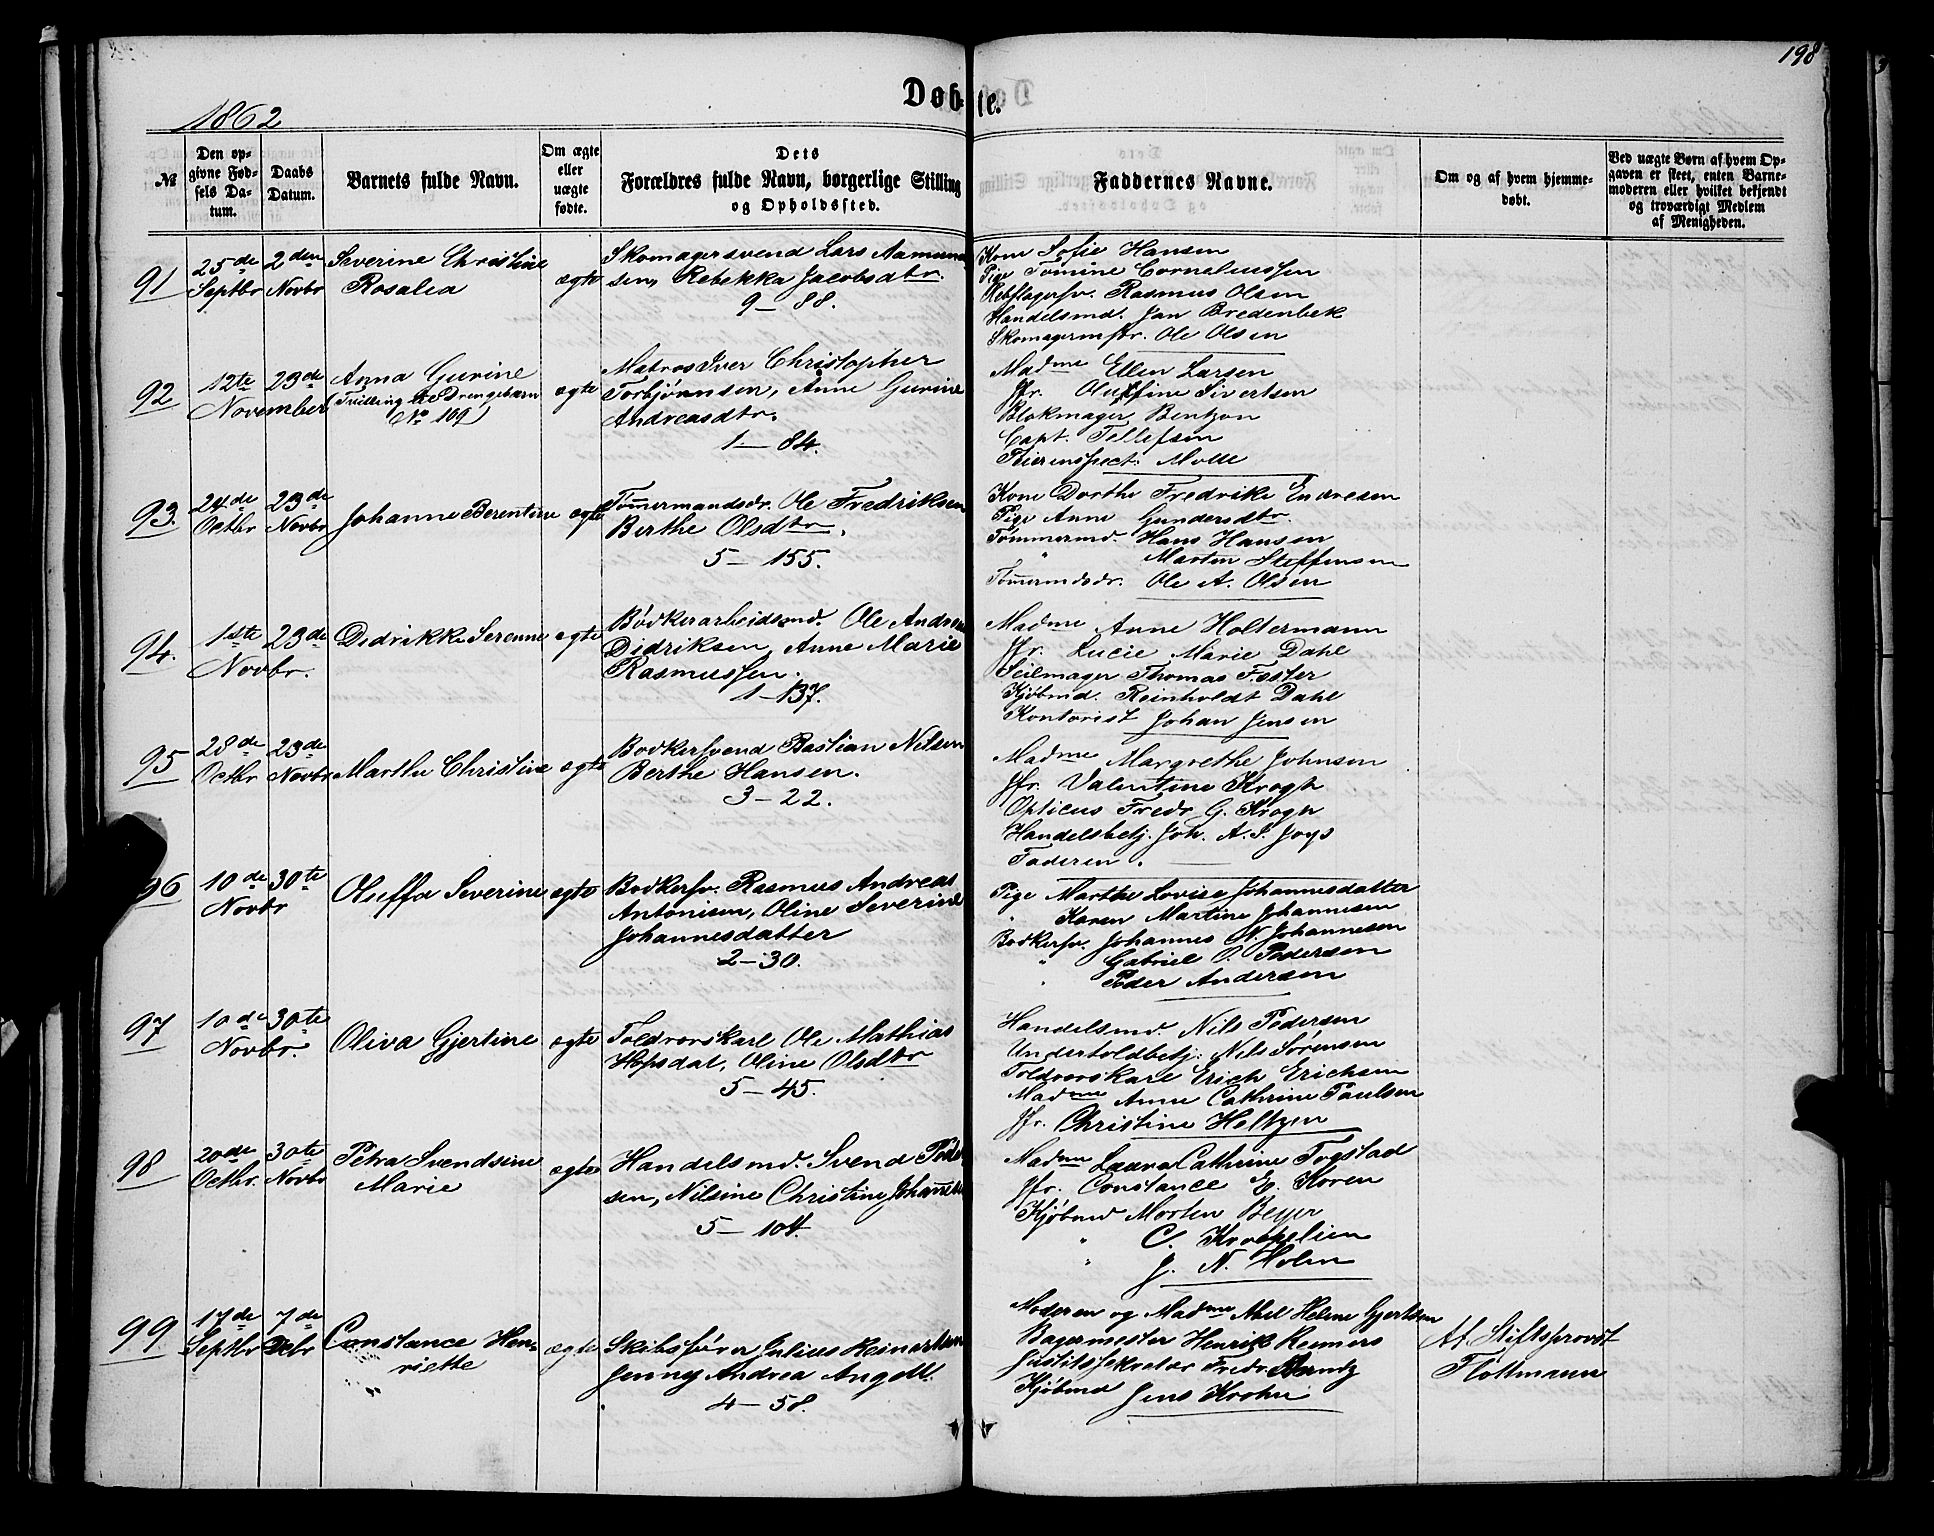 198
Døbte.
1862
№
Den opgivne Fødsels Datum.
Daabs Datum.
Barnets fulde Navn.
Om ægte eller uægte fødte.
Dets Forældres fulde Navn, borgerlige Stilling og Opholdssted.
Faddernes Navne.
Om og af hvem hjemmedøbt.
Ved uægte Børn af hvem Opgaven er skeet, enten Barnemoderen eller hvilket bekjendt og troværdigt Medlem af Menigheden.
91
25de Septbr
2den Novbr
Severine Christine
Rosalea
ægte
Skomagersvend Lars Aamund
sen, Rebekka Jacobsdtr.
9 - 88.
Kone Sofie Hansen
Pige Tomine Corneliussen
Rebslagersv. Rasmus Olsen
Handelsmd. Jan Bredenbek
Skomagermstr. Ole Olsen
92
12te November
23de
Anna Gurine
(Tvilling til Drengebarn
No 109)
ægte
Matros Iver Christopher
Torbjørnsen, Anne Gurine
Andreasdtr.
1 - 84.
Madme Ellen Larsen
Jfr. Oluffine Sivertsen
Blokmager Bentzon
Capt. Tellefsen
Tierinspect: Molle
93.
24de Octbr
23de Novbr
Johanne Berentine
ægte
Tømmermandsdr. Ole Fredriksen
Berthe Olsdtr.
5 - 155.
Kone Dorthe Fredrike Endresen
Pige Anne Gundersdtr.
Tømmermd. Hans Hansen
" Martin Steffensen
Tømermdsdr. Ole A. Olsen
94.
1ste Novbr.
23de
Didrikke Serenne
ægte
Bødkerarbeidsmd. Ole Andreas
Didriksen, Anne Marie
Rasmussen.
1 - 137.
Madme Anne Holtermann
Jfr. Lucie Marie Dahl
Seilmager Thomas Foster
Kjøbmd. Reinholdt Dahl
Kontorist Johan Jensen
95
28de Octbr
23de Novbr
Marthe Christine
ægte
Bødkersvend Bastian Nilsen
Berthe Hansen.
3 - 22.
Madme Margrethe Johnsen
Jfr. Valentine Krogh
Opticus Fredr G. Krogh
Handelsbetj. Joh. A. S. Joys
Faderen.
96
10de Novbr
30te
Oluffa Severine
ægte
Bødkersv. Rasmus Andreas
Antonisen, Oline Severine
Johannesdatter
2 - 30.
Pige Marthe Lovise Johannesdatter
" Karen Martine Johannesen
Bødkersv. Johannes N. Johannesen
" Gabriel O. Pedersen
" Peder Andersen
97
10de Novbr.
30te
Oliva Gjertine
ægte
Toldrorskarl Ole Mathias
Hopsdal, Oline Olsdtr
5 - 45.
Handelsmd. Nils Pedersen
Undertoldbetj: Nils Sørensen
Toldrorskarl Erich Erichsen
Madme Anne Cathrine Paulsen
Jfr. Christine Heltzen
98
20de Octbr.
30te Novbr
Petra Svendsine
Marie
ægte
Handelsmd. Svend Peder
sen, Nilsine Christine Johannes
5 - 104.
Madme Laura Cathrine Fogstad
Jfr. Constance E. Koren
Kjøbmd Morten Beyer
" C. Krohelien
" J. N. Holm
99.
17de Septbr
7de Debr
Constance Hen-
riette
ægte
Skibsfører Julius Reinertsen
Jenny Andrea Angell.
4 - 58.
Moderen og Madme Abel Helene Gjertsen
Bagermester Henrik Reimers
Justitssekretær Fredr Bruntz
Kjøbmd Jens Krohn
Af Stiftsprovst
Flottmann